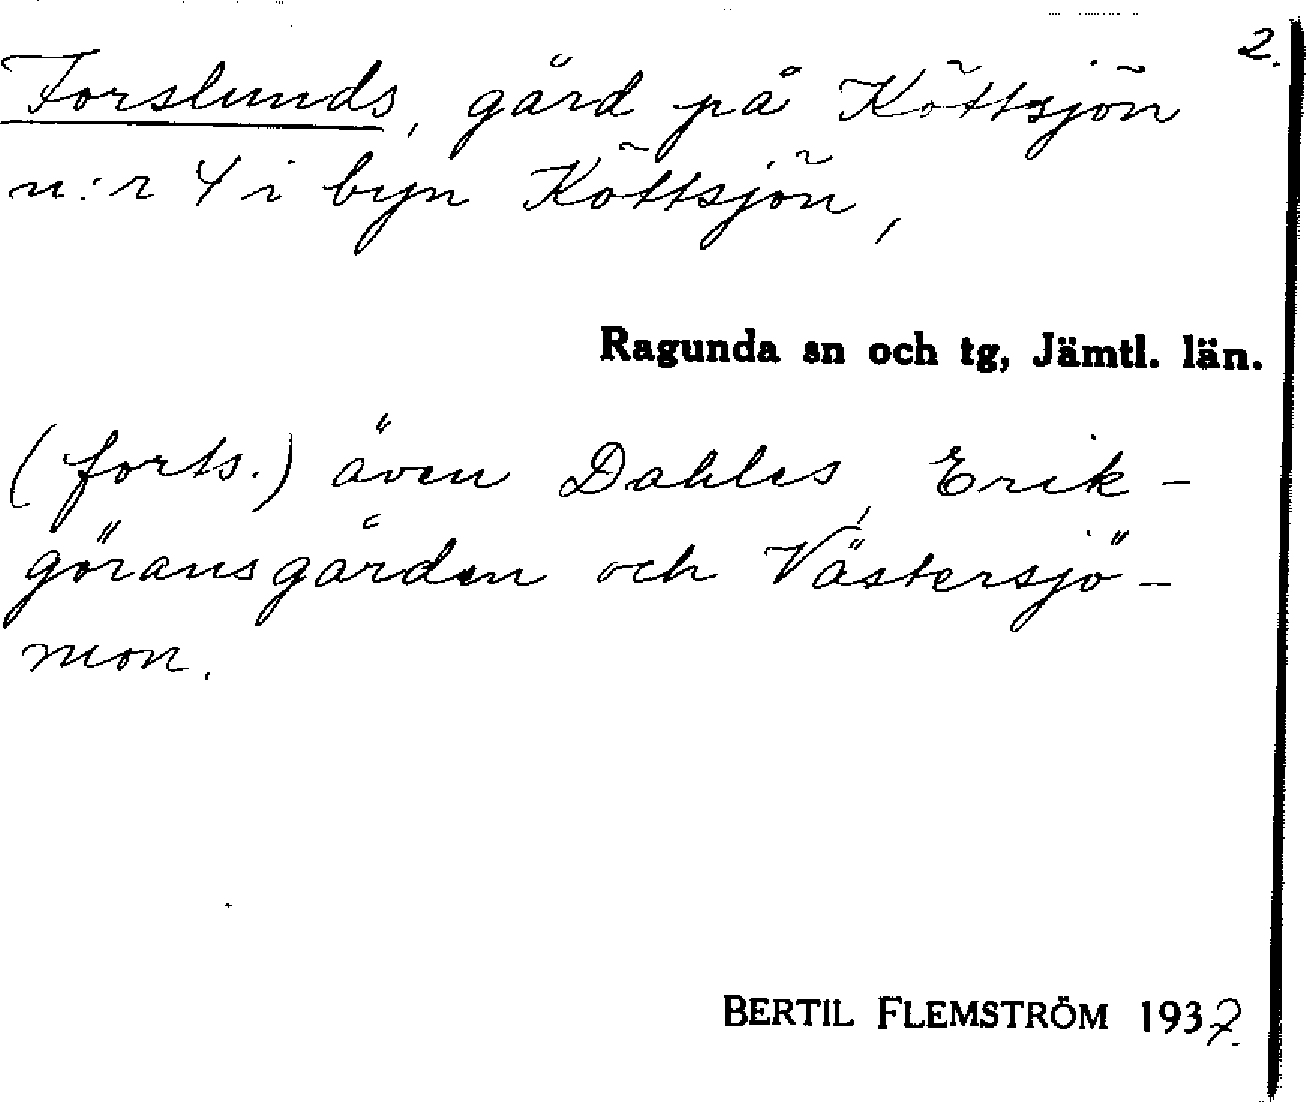 2.
Forslunds, gård på Köttsjön
n:r 4 i byn Köttsjön,
Ragunda sn och tg, Jämtl. län.
(forts.) även Dahles, Erik-
göransgården och Västersjö-
mon.
BERTIL FLEMSTRÖM 1937.